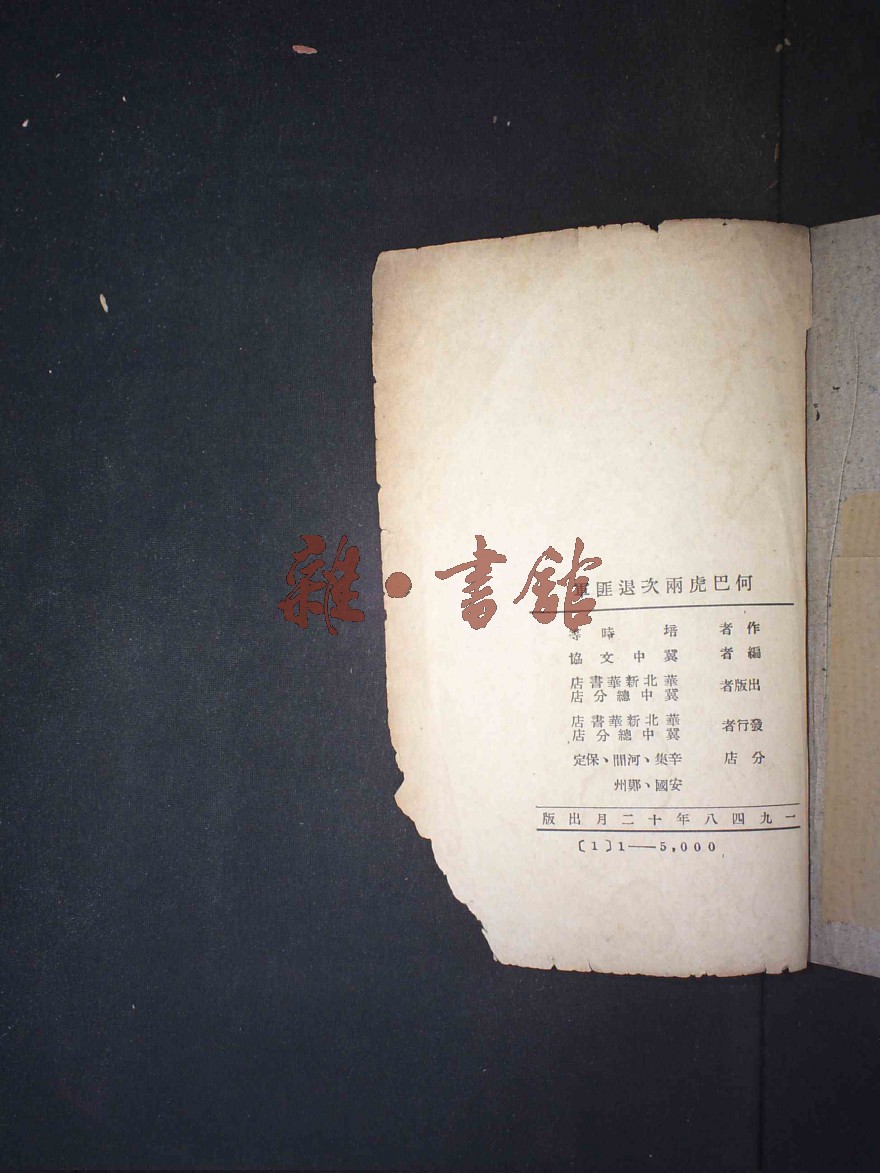 何巴虎兩次退匪軍
作者 培時等
編者 冀中文協
出版者 華北新華書店
冀中總分店
發行者 華北新華書店
冀中總分店
分店 辛集、河間、保定
安國、鄚州
一九四八年十二月出版
〔1〕1—5,000
雜·書館